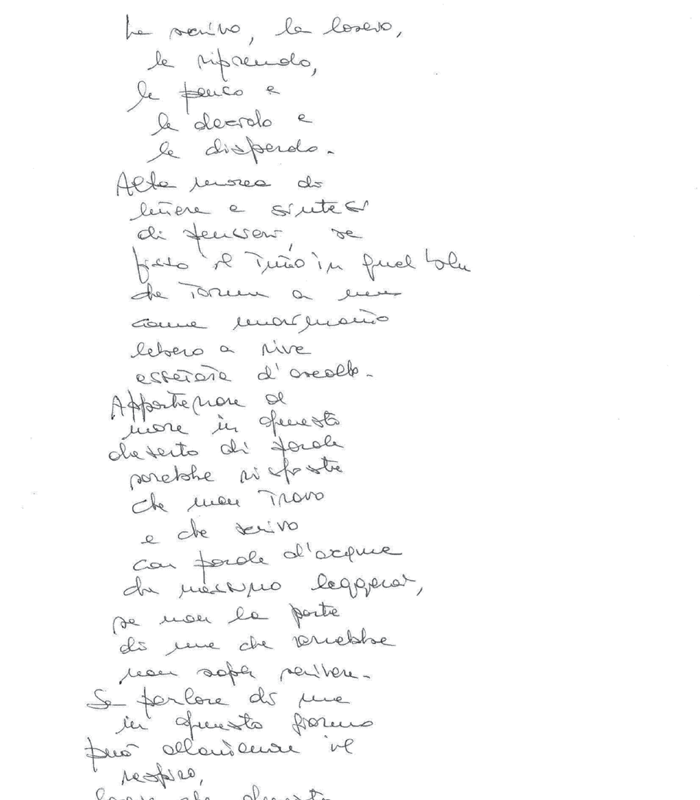 La scrivo, la lascio,
la riprendo,
la penso e
la decido e
la disperdo.
Alla ricerca di
lettere e sintesi
di pensieri, se
fisso il Tutto in quel blu
che Torna a me
come
libero a rive
assetate d'ascolto.
Appartenere al
mare in questo
deserto di parole
sarebbe risposta
che non Trovo
e che scrivo
con parole d'acqua
che nessuno leggerà,
se non la parte
di me che vorrebbe
non saper scrivere.
Se parlare di me
in questo giorno
può allontanare il
respiro,